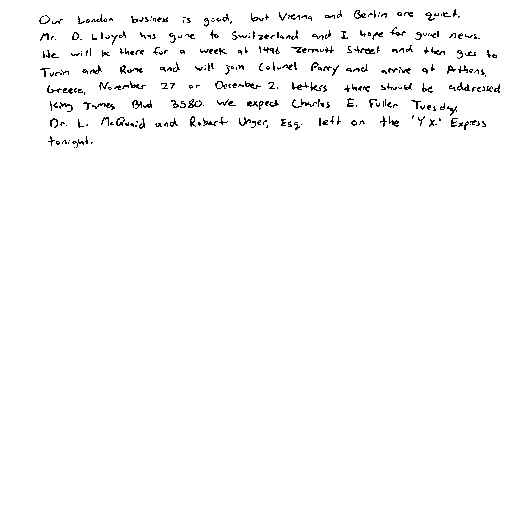 Our London business is good, but Vienna and Berlin are quiet.
Mr. D. Lloyd has gone to Switzerland and I hope for good news.
He will be there for a week at 1496 Zermott Street and then goes to
Turin and Rome and will join Colonel Parry and arrive at Athens,
Greece, November 27 or December 2. Letters there should be addressed
King James Blvd 3580. We expect Charles E. Fuller Tuesday.
Dr. L. McQuaid and Robert Unger, Esq. left on the 'Y.X.' Express
tonight.